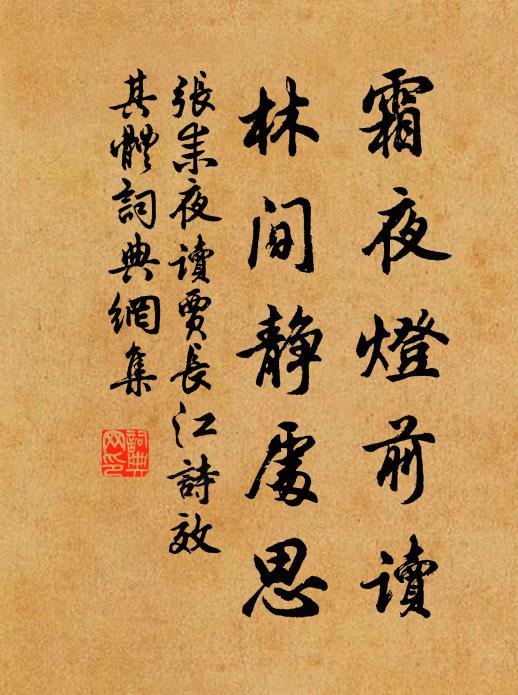 霜夜燈前讀
林間静處思
張耒夜讀賈長江詩效
其體詞典網集
詞典
网印